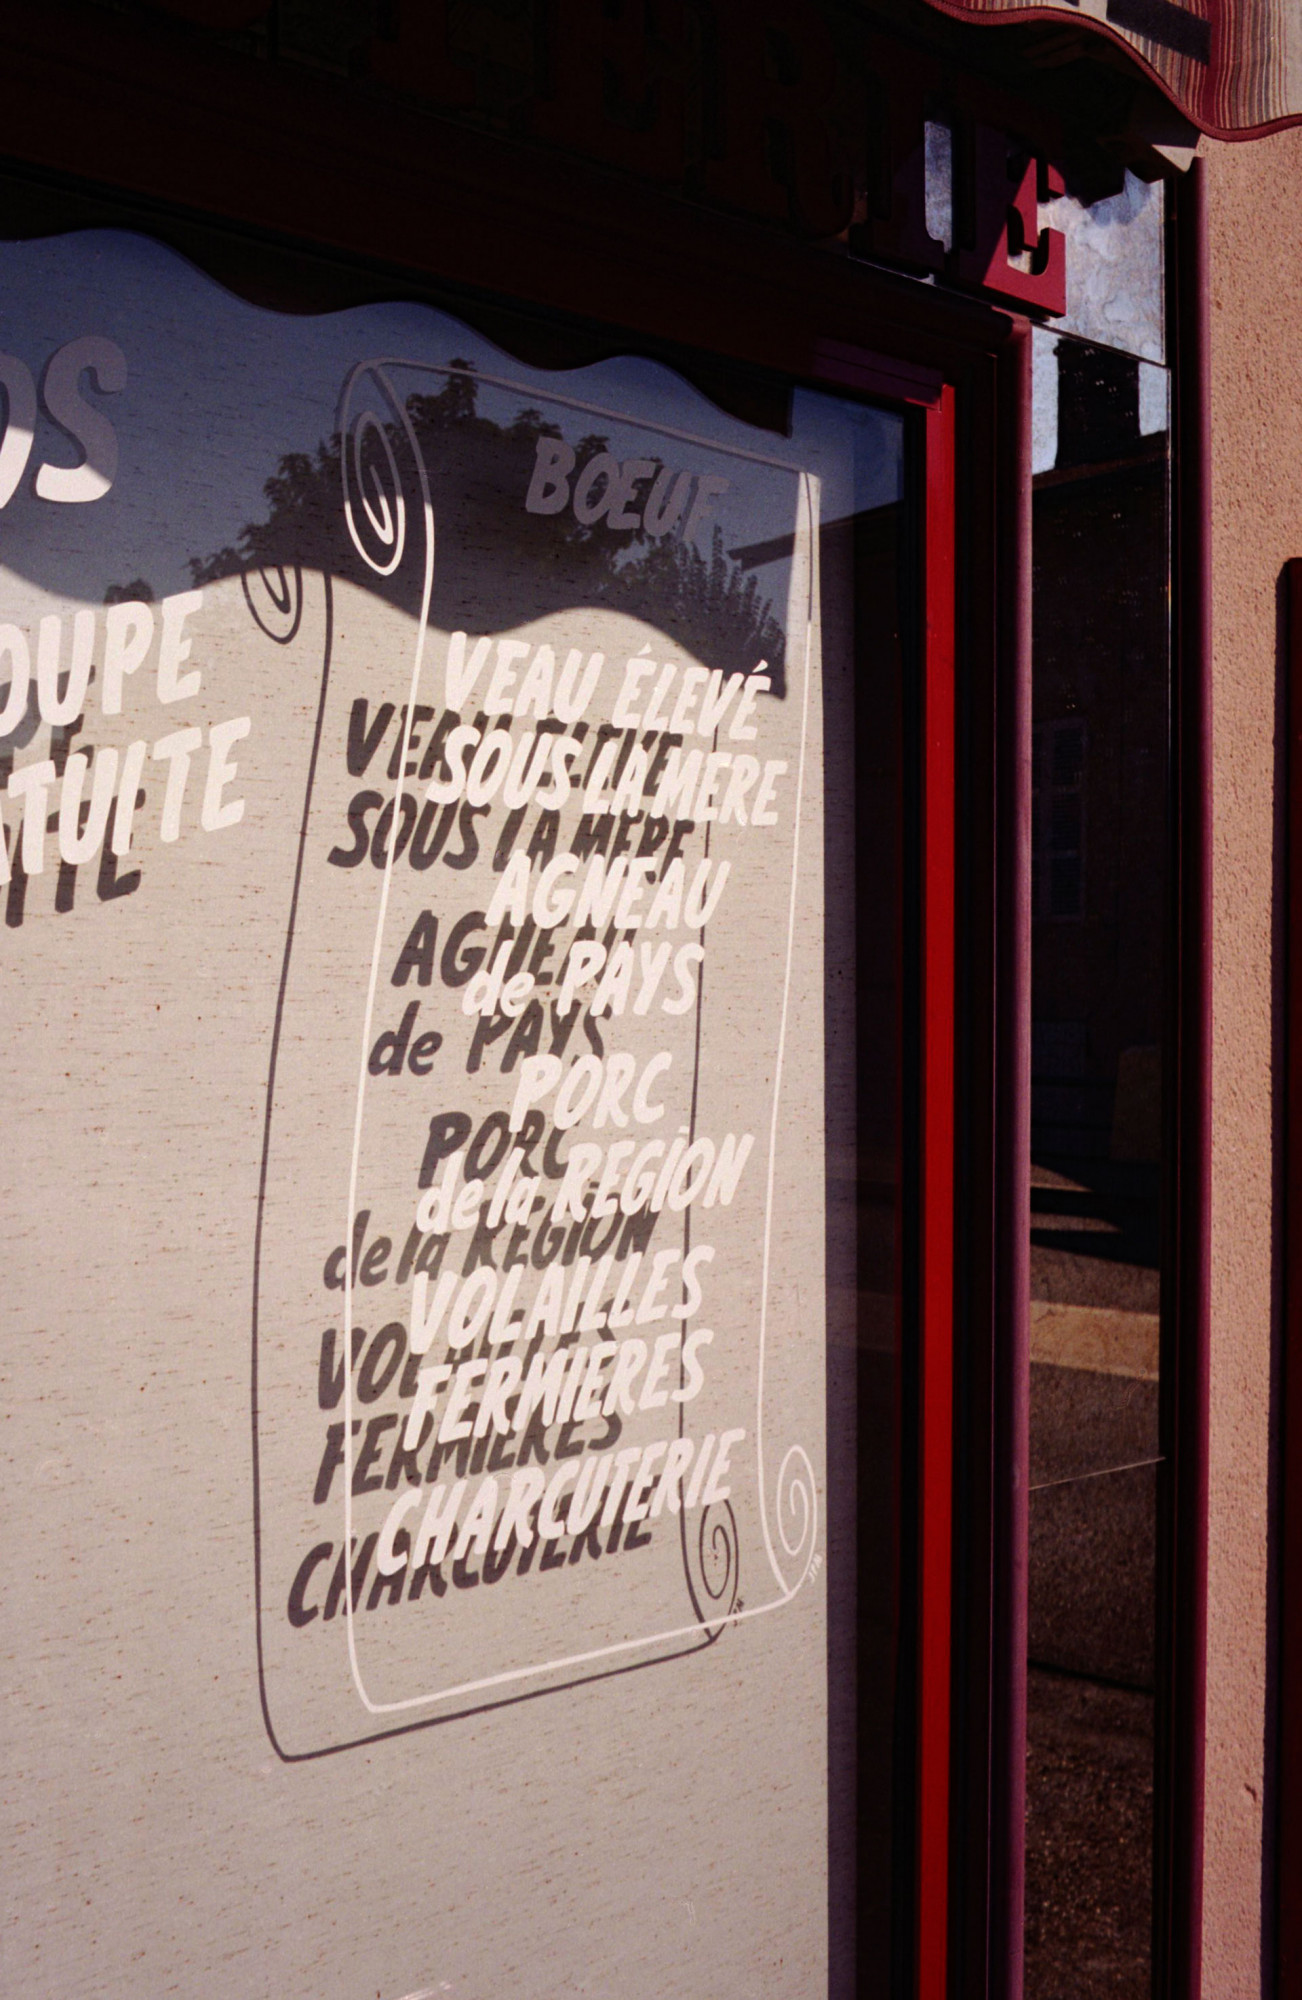 OS
OUPE
ATUITE
BŒUF
VEAU ÉLEVÉ
SOUS LA MÈRE
AGNEAU
de PAYS
PORC
de la REGION
VOLAILLES
FERMIÈRES
CHARCUTERIE